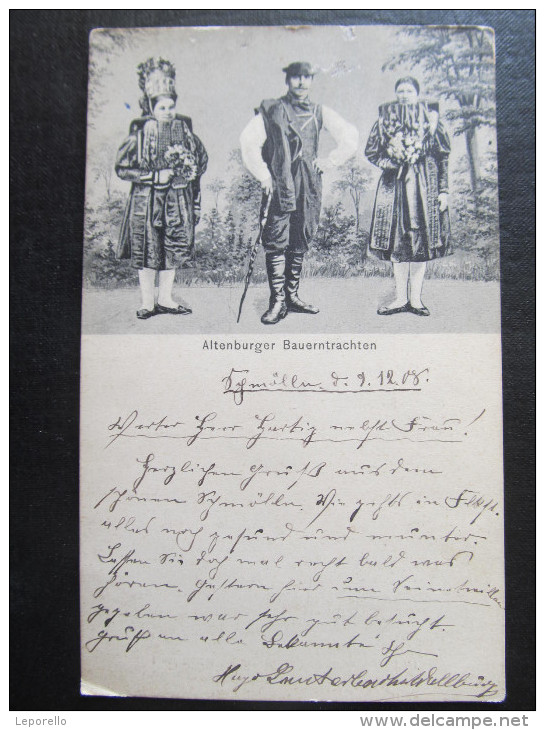 Altenburger Bauerntrachten
Schmölln, d. 9.12.08.
Werter Herr Hartig nebst Frau!
Herzlichen Gruß aus dem
schönen Schmölln. Wie gehts in
alles noch gesund und munter.
Lassen Sie doch mal recht bald was
hören. Gestern hier zum
gegeben war sehr gut besucht.
Gruß an alle Bekannte
Hugo
Leporello
www.delcampe.net